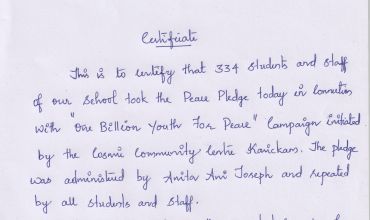 Certificate
This is to certify that 334 students and staff
of our school took the Peace Pledge today in connection
with "One Billion Youth For Peace" Campaign initiated
by the Cosmic Community Centre Karickam. The pledge
was administered by Anita Ani Joseph and repeated
by all students and staff.